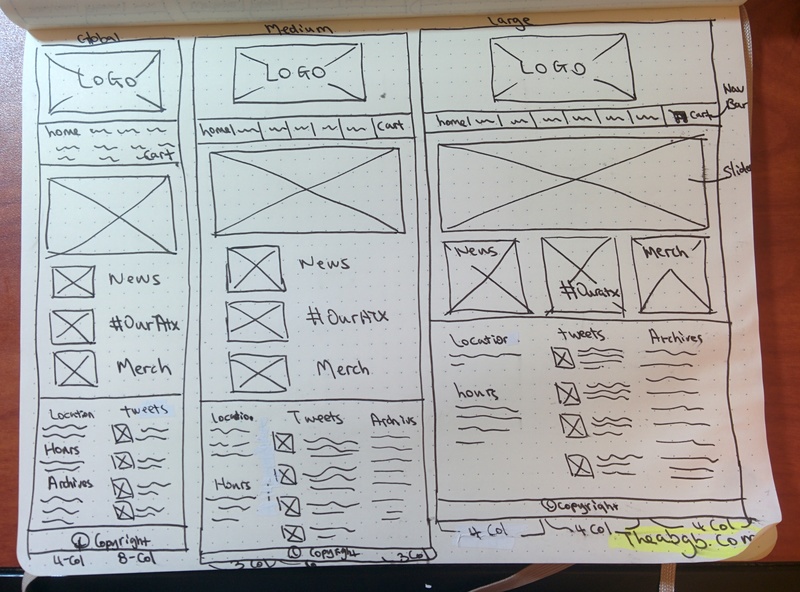 Global
LOGO
home
Cart
News
#OurAtx
Merch
Location
tweets
Hours
Archives
© Copyright
4-Col 8-Col
Medium
LOGO
home Cart
News
#OurATX
Merch
Location Tweets Archivs
Hours
© Copyright
3 Col 3 Col
Large
LOGO
home Cart
Nav
Bar
News
#Ouratx
Merch
Location tweets Archives
hours
© Copyright
4 Col 4 Col 4 Col
Theabgb.com